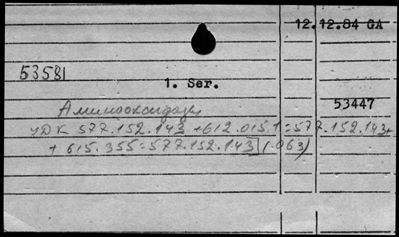 12.12.84 GA
53581
1. Ser.
53447
Аминооксидазы
УДК 577.152.143 +612.015.1:577.152.143+
+ 615.355:577.152.143](.063)